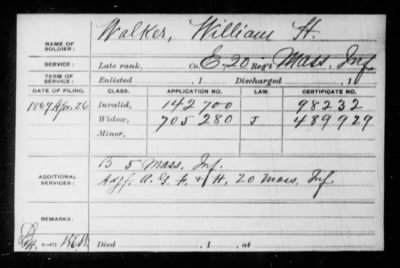 Walker, William H.
NAME OF SOLDIER:
SERVICE: Late rank, Co. E-20 Reg't Mass. Inf.
TERM OF SERVICE: Enlisted , 1 Discharged , 1
DATE OF FILING. CLASS. APPLICATION NO. LAW. CERTIFICATE NO.
1869 Apr. 26 Invalid, 142700 98232
Widow, 705280 J 489929
Minor,
B 5 Mass. Inf.
ADDITIONAL SERVICES: A. G. F. + H, 20 Mass. Inf.
REMARKS:
Died , 1 , at